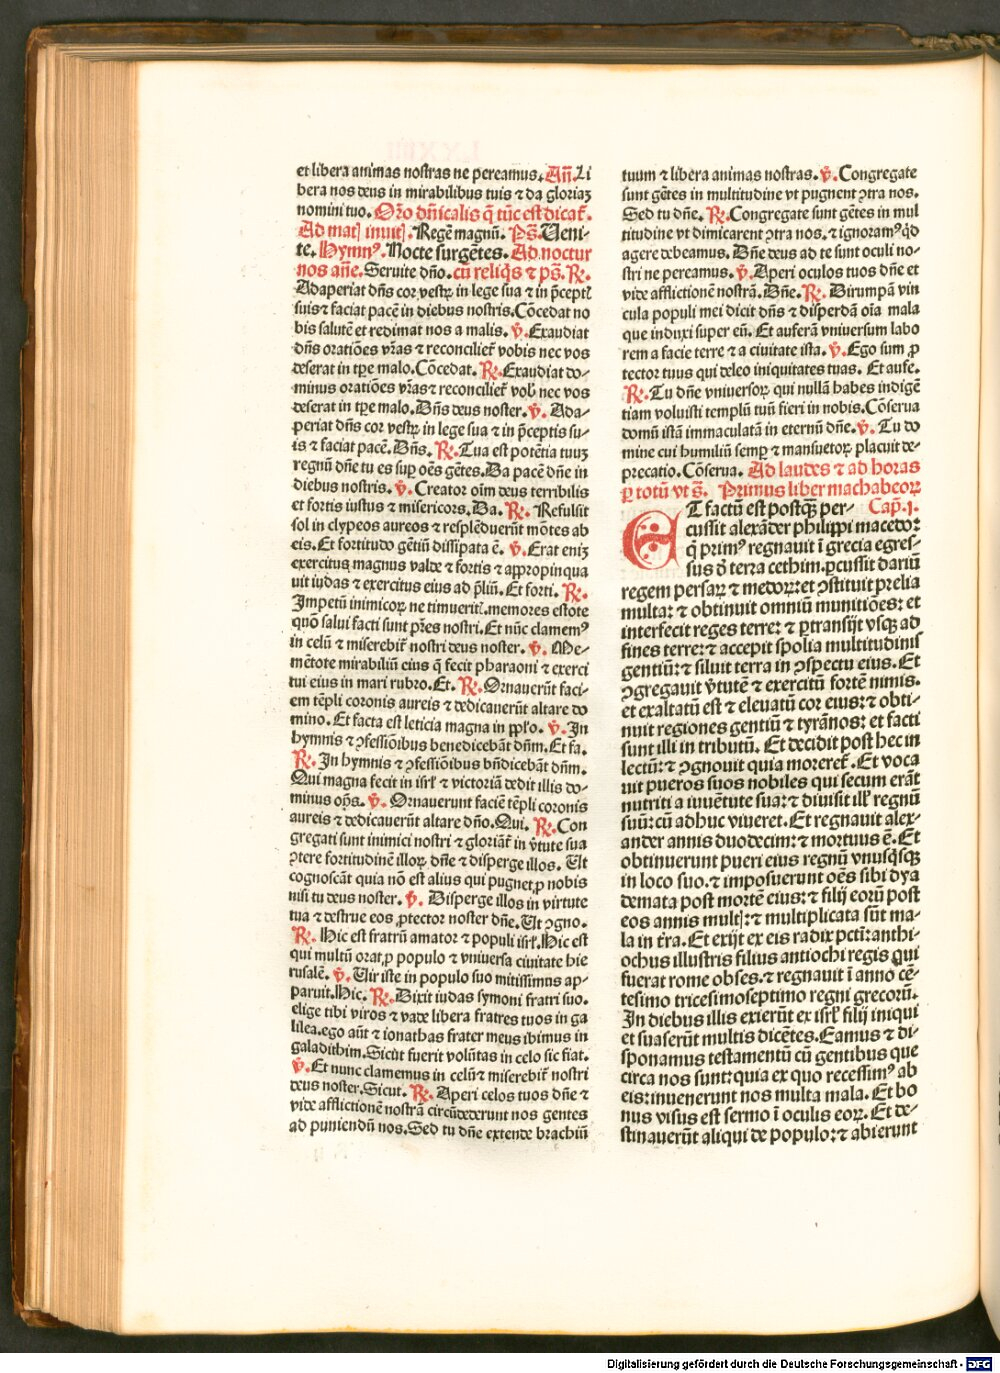 et libera animas nostras ne pereamus. Añ. Li
bera nos deus in mirabilibus tuis ⁊ da gloriaꝫ
nomini tuo. Or̃o dñicalis q̃ tũc est dicat̃.
Ad matꝭ inuitꝭ. Regẽ magnũ. Ps̃. Ueni-
te. Hymnꝰ. Nocte surgẽtes. Ad noctur
nos añe. Seruite dño. cũ reliq̃s ⁊ ps̃. R̃.
Adaperiat dñs cor vestꝝ in lege sua ⁊ in p̃ceptꝭ
suis ⁊ faciat pacẽ in diebus nostris. Cõcedat no
bis salutẽ et redimat nos a malis. V̄. Exaudiat
dñs oratiões vr̃as ⁊ reconciliet̃ vobis nec vos
deserat in tp̃e malo. Cõcedat. R̃. Exaudiat do-
minus oratiões vr̃as ⁊ reconciliet̃ vob̃ nec vos
deserat in tp̃e malo. Dñs deus noster. V̄. Ada-
periat dñs cor vestꝝ in lege sua ⁊ in p̃ceptis su-
is ⁊ faciat pacẽ. Dñs. R̃. Tua est potẽtia tuuꝫ
regnũ dñe tu es suꝑ oẽs gẽtes. Da pacẽ dñe in
diebus nostris. V̄. Creator oĩm deus terribilis
et fortis iustus ⁊ misericors. Da. R̃. Refulsit
sol in clypeos aureos ⁊ resplẽduerũt mõtes ab
eis. Et fortitudo gẽtiũ dissipata ẽ. V̄. Erat eniꝫ
exercitus magnus valde ⁊ fortis ⁊ appropinqua
uit iudas ⁊ exercitus eius ad p̃liũ. Et forti. R̃.
Impetũ inimicoꝝ ne timueritꝭ. memores estote
quõ salui facti sunt pr̃es nostri. Et nũc clamemꝰ
in celũ ⁊ miserebit̃ nostri deus noster. V̄. Me-
mẽtote mirabiliũ eius q̃ fecit pharaoni ⁊ exerci
tui eius in mari rubro. Et. R̃. Ornauerũt faci-
em tẽpli coronis aureis ⁊ dedicauerũt altare do
mino. Et facta est leticia magna in pp̃lo. V̄. In
hymnis ⁊ ɔfessiõibus benedicebãt dñm. Et fa.
R̃. In hymnis ⁊ ɔfessiõibus bñdicebãt dñm.
Qui magna fecit in isrl̃ ⁊ victoriã dedit illis do-
minus op̃s. V̄. Ornauerunt faciẽ tẽpli coronis
aureis ⁊ dedicauerũt altare dño. Qui. R̃. Con
gregati sunt inimici nostri ⁊ gloriãt̃ in v̄tute sua
ɔtere fortitudinẽ illoꝝ dñe ⁊ disperge illos. Ut
cognoscãt quia nõ est alius qui pugnet ꝓ nobis
nisi tu deus noster. V̄. Disperge illos in virtute
tua ⁊ destrue eos ꝓtector noster dñe. Ut ɔgno.
R̃. Hic est fratrũ amator ⁊ populi isrl̃. Hic est
qui multũ orat ꝓ populo ⁊ vniuersa ciuitate hie
rusalẽ. V̄. Uir iste in populo suo mitissimus ap-
paruit. Hic. R̃. Dixit iudas symoni fratri suo.
elige tibi viros ⁊ vade libera fratres tuos in ga
lilea. ego aũt ⁊ ionathas frater meus ibimus in
galadithim. Sicut fuerit volũtas in celo sic fiat.
V̄. Et nunc clamemus in celũ ⁊ miserebit̃ nostri
deus noster. Sicut. R̃. Aperi celos tuos dñe ⁊
vide afflictionẽ nostrã circũdederunt nos gentes
ad puniendũ nos. Sed tu dñe extende brachiũ
tuum ⁊ libera animas nostras. V̄. Congregate
sunt gẽtes in multitudine vt pugnent ɔtra nos.
Sed tu dñe. R̃. Congregate sunt gẽtes in mul
titudine vt dimicarent ɔtra nos. ⁊ ignoramꝰ qd̃
agere debeamus. Dñe deus ad te sunt oculi no-
stri ne pereamus. V̄. Aperi oculos tuos dñe et
vide afflictionẽ nostrã. Dñe. R̃. Dirumpã vin
cula populi mei dicit dñs ⁊ disperdã oĩa mala
que induxi super eũ. Et auferã vniuersum labo
rem a facie terre ⁊ a ciuitate ista. V̄. Ego sum ꝓ
tector tuus qui deleo iniquitates tuas. Et aufe.
R̃. Tu dñe vniuersoꝝ qui nullã habes indigẽ
tiam voluisti templũ tuũ fieri in nobis. Cõserua
domũ istã immaculatã in eternũ dñe. V̄. Tu do
mine cui humiliũ semꝑ ⁊ mansuetoꝝ placuit de-
precatio. Cõserua. Ad laudes ⁊ ad horas
ꝑ totũ vt s̃. Primus liber machabeoꝝ
ET factũ est postq̃ꝫ per- Cap. j.
cussit alexãder philippi macedo:
q̃ primꝰ regnauit ĩ grecia egres-
sus d̃ terra cethim. ꝑcussit dariũ
regem persaꝝ ⁊ medoꝝ: et ɔstituit prelia
multa: ⁊ obtinuit omniũ munitiões: et
interfecit reges terre: ⁊ ꝑtransijt vsqꝫ ad
fines terre: ⁊ accepit spolia multitudinis
gentiũ: ⁊ siluit terra in ɔspectu eius. Et
ɔgregauit v̄tutẽ ⁊ exercitũ fortẽ nimis.
et exaltatũ est ⁊ eleuatũ cor eius: ⁊ obti-
nuit regiones gentiũ ⁊ tyrãnos: et facti
sunt illi in tributũ. Et decidit post hec in
lectũ: ⁊ ɔgnouit quia moreret̃. Et voca
uit pueros suos nobiles qui secum erãt
nutriti a iuuẽtute sua: ⁊ diuisit ill̃ regnũ
suũ: cũ adhuc viueret. Et regnauit alex-
ander annis duodecim: ⁊ mortuus ẽ. Et
obtinuerunt pueri eius regnũ vnusq̃sqꝫ
in loco suo. ⁊ imposuerunt oẽs sibi dya
demata post mortẽ eius: ⁊ filij eorũ post
eos annis multꝭ: ⁊ multiplicata sũt ma-
la in t̃ra. Et exijt ex eis radix pctĩ: anthi-
ochus illustris filius antiochi regis qui
fuerat rome obses. ⁊ regnauit ĩ anno cẽ-
tesimo tricesimoseptimo regni grecorũ.
In diebus illis exierũt ex isrl̃ filij iniqui
et suaserũt multis dicẽtes. Eamus ⁊ di-
sponamus testamentũ cũ gentibus que
circa nos sunt: quia ex quo recessimꝰ ab
eis: inuenerunt nos multa mala. Et bo
nus visus est sermo ĩ oculis eoꝝ. Et de-
stinauerũt aliqui de populo: ⁊ abierunt
Digitalisierung gefördert durch die Deutsche Forschungsgemeinschaft - DFG